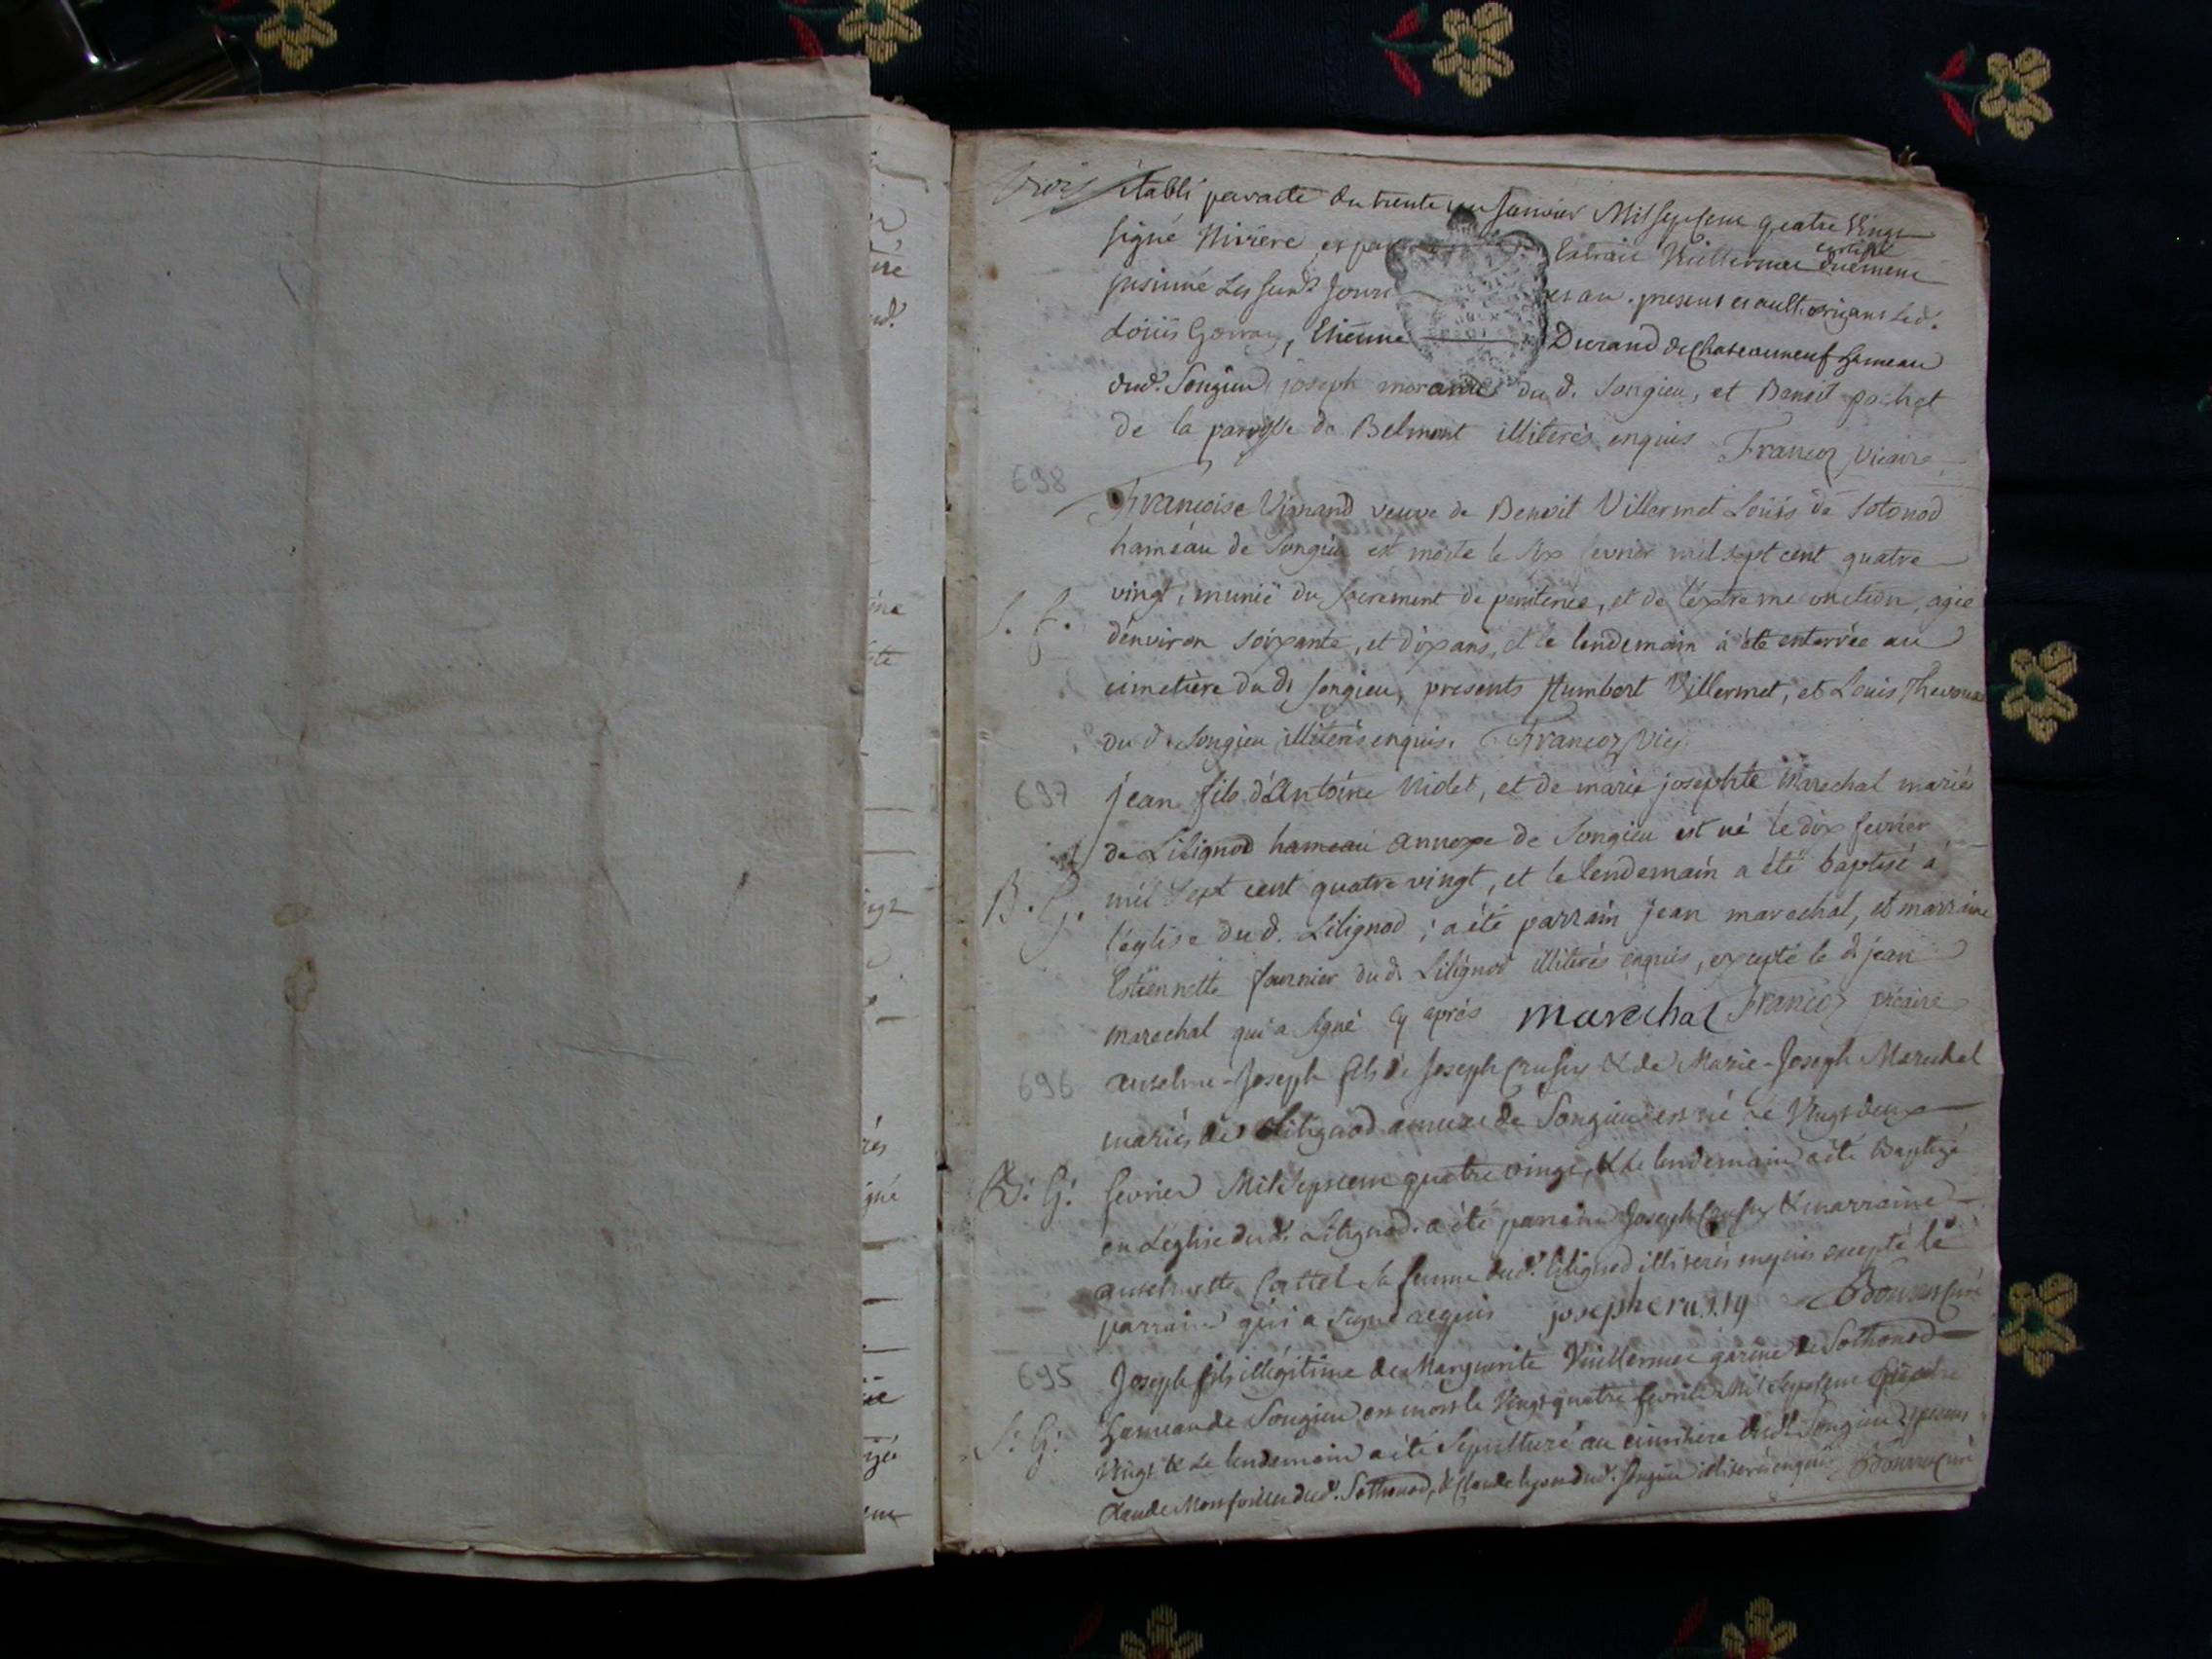 trois établi par acte du trente un janvier Mil sept cent quatre vingt
signé Nivière, et par extrait Vuillermet certifié duement
insinué Les susd. Jours et an. presens et aulthorizans led.
Loüis Gorraz, Etienne Durand de Chateauneuf hameau
dud. Songieu, joseph morand du d. songieu, et Benoit pochet
de la paroisse de Belmont illiterés enquis Francoz vicaire
698
Françoise Vinand veuve de Benoit Villermet Loüis de Sotonod
hameau de Songieu est morte le six fevrier mil sept cent quatre
vingt, munie du sacrement de penitence, et de l'extreme onction, agée
S. G.
d'environ soixante, et dix ans, et le lendemain a été enterrée au
cimetière du d. songieu, presents humbert Villermet, et Louis
du d. songieu illiterés enquis. Francoz vic.
697
jean fils d'Antoine Nidet, et de marie josephte Marechal mariés
de Lilignod hameau annexe de Songieu est né le dix fevrier
B. G.
mil sept cent quatre vingt, et le lendemain a été baptisé à
l'église du d. Lilignod ; a été parrain jean marechal, et marraine
Estiennette fournier du d. Lilignod illiterés enquis, excepté le d. jean
marechal qui a signé cy aprés marechal Francoz vicaire
696
anselme-Joseph fils de Joseph Crusy & de Marie-Joseph Marechal
mariés de Lilignod annexe de Songieu est né le vingt deux
B. G.
fevrier Mil sept cent quatre vingt, & le lendemain a été Baptizé
en L'église dud. Lilignod. a été parrain Joseph Crusy & marraine
anselmette Cattel sa femme dud. Lilignod illiterés enquis excepté le
parrain qui a signé requis joseph crusy
695
Joseph fils illégitime de Marguerite Vuillermet garine de Sothonod
S. G.
hameau de Songieu est mort le Vingt quatre fevrier Mil sept cent quatre
Vingt & Le lendemain a été sepulturé au cimetière dud. Songieu presens
Claude dud. Sothonod, & Claude dud. songieu illiterés enquis curé